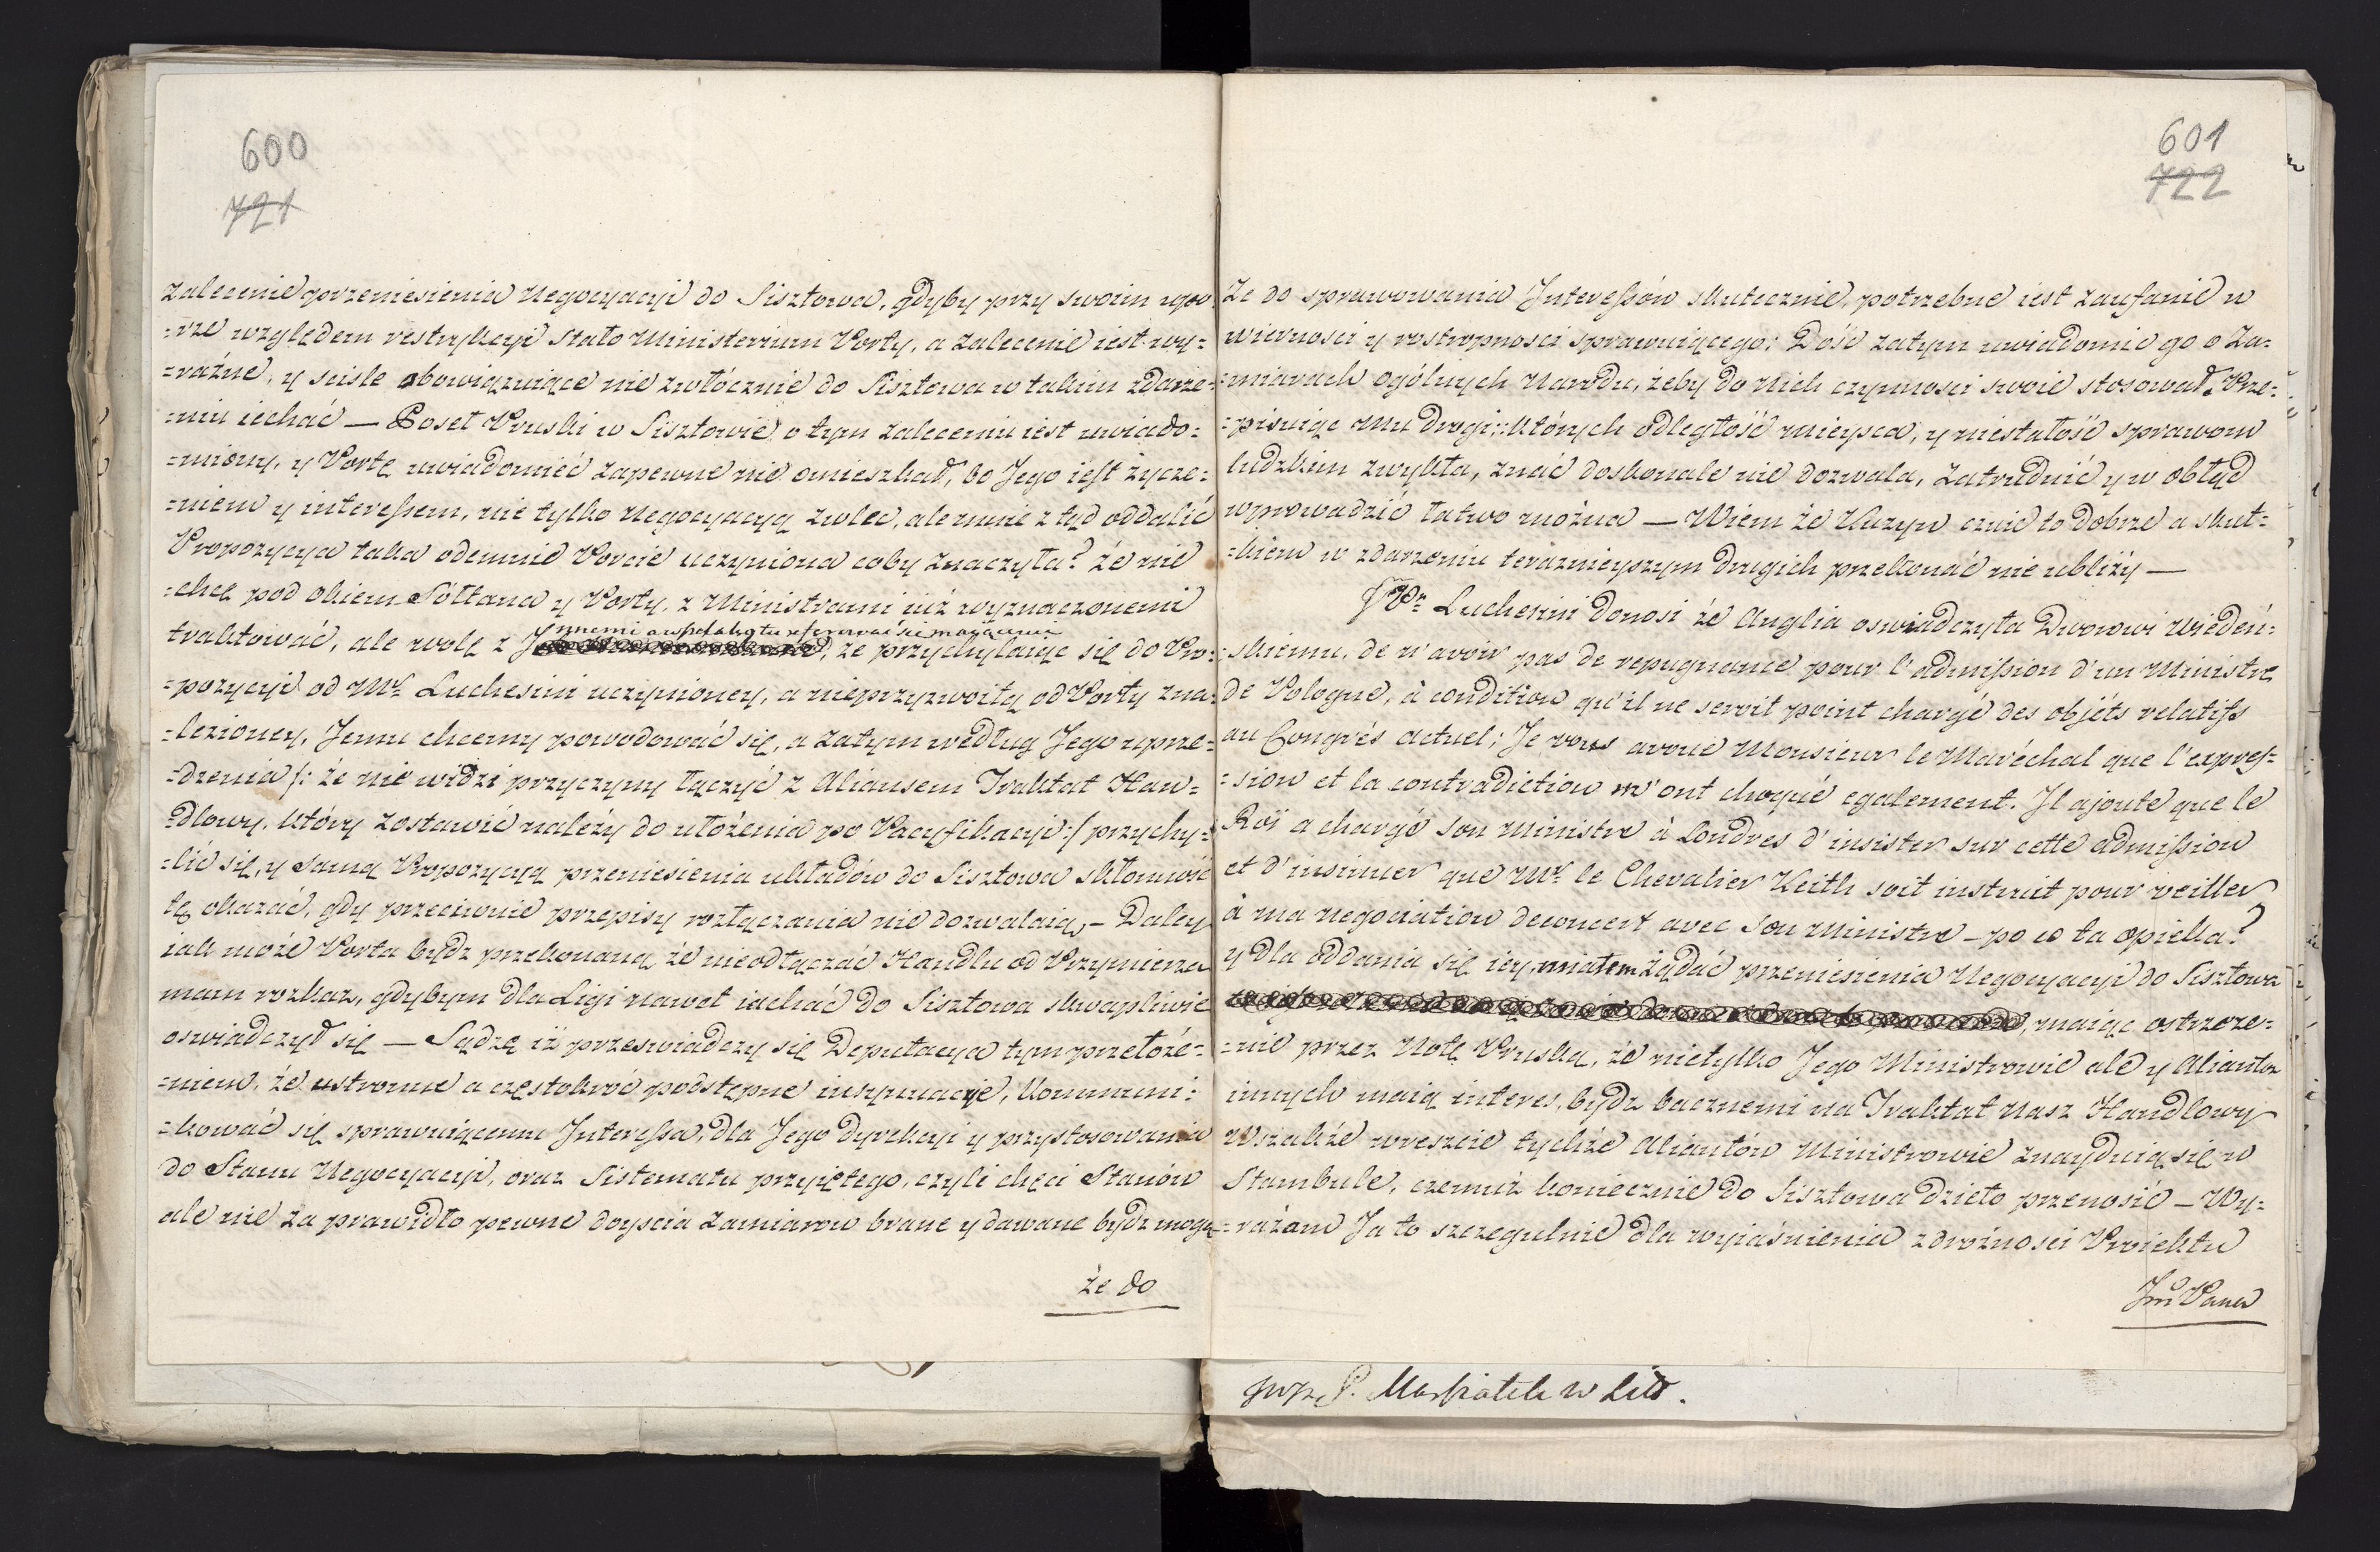 600
721
zalecenie przeniesienia Negocyacyi do Sisztowa, gdyby przy swoim upo
=rze względem restrykcyi stało Ministerium Porty, a zalecenie iest wy=
=raźne, y scisle obowiązuiące nie zwłócznie do Sisztowa w takim zdarze=
=niu iechać — Poseł Pruski w Sisztowie o tym zaleceniu iest uwiado=
=miony, y Portę uwiadomieć zapewne nie omieszkał, bo Jego iest życze=
=niem y interessem, nie tylko Negocyacyą zwlec, ale mnie z tąd oddalić
Propozycya taka odemnie Porcie uczyniona coby znaczyła? że nie
=chcę pod okiem Sółtana y Porty, z Ministrami iuż wyznaczonemi
traktować, ale wolę z Jnnemi a wszelako tu referować się maiącemi
że przychylaiąc się do Pro=
=pozycyi od Mr. Luchesini uczynioney, a nieprzyzwoitą od Porty zna=
=lezioney, Jemu chcemy powodować się, a zatym według Jego uprze=
=dzenia /: że nie widzi przyczyny łączyć z Aliansem Traktat Han=
=dlowy, który zostawić należy do ułożenia po Pacyfikacyi :/ przychy=
=lić się, y samą Propozycyą przeniesienia układów do Sisztowa skłonność
tę okazać, gdy przeciwnie przepisy rozłączania nie dozwalaią, - Daley
iak może Porta bydz przekonaną, że nieodłączać Handlu od Przymierza
mam rozkaz, gdybym dla Ligi nawet iachać do Sisztowa skwapliwie
oswiadczył się — Sądzę iż przeswiadczy się Deputacya tym przełoże=
=niem, że ustronne a częstokroć podstępne insynuacye, kommuni=
=kować się sprawuiącemu Interessa, dla Jego dyrekcyi y przystosowania
do Stanu Negocyacyi, oraz Sistematu przyiętego, czyli chęci Stanów
ale nie za prawidło pewne doyscia zamiarow brane y dawane bydz mogą
że do
601
722
Ze do sprawowania Interessów skutecznie, potrzebne iest zaufanie w
wierności y rostropnosci sprawuiącego: Dość zatym uwiadomić go o Za=
=miarach ogólnych Narodu, żeby do nich czynnosci swoie stosował. Prze=
=pisuiąc mu drogi: których odległość mieysca, y niestałość sprawom
ludzkim zwykła, znać doskonale nie dozwala, zatrudnić y w obłąd
wprowadzić łatwo można — Wiem że Kuzyn czuie to dobrze a skut=
=kiem w zdarzeniu terazniejszym drugich przekonać nie ubliży —
Luchesini donosi że Anglia oswiadczyła Dworowi Wiedeń=
=skiemu, de n'avoir pas de repugnance pour l'admission d'un Ministre
de Pologne, à condition qu'il ne seroit point chargé des objéts relatifs
au Congrès actuel; Je vous avoue Monsieur le Maréchal que l'expres=
=sion et la contradiction m'ont choqué egalement. Jl ajoute que le
Roi a chargé son Ministre à Londres d'insister sur cette admission
et d'insinuer que Mr. le Chevalier Keith soit instruit pour veiller
à ma negociation deconcert avec son Ministre - po co ta opieka?
y dla oddania się iey, miałem żądać przeniesienia Negocyacyi do Sisztowa
maiąc ostrzeże=
=nie przez Notę Pruską, że nietylko Jego Ministrowie ale y Aliantów
innych maią interes, bydz bacznemi na Traktat nasz Handlowy
Wszakże wreszcie tychże Aliantów Ministrowie znayduią się w
Stambule, czemuż koniecznie do Sisztowa dzieło przenosić — Wy=
=rażam Ja to szczegulnie dla wyiaśnienia zdrożnosci Proiektu
Jmci Pana
P. Marszałek w Lit.